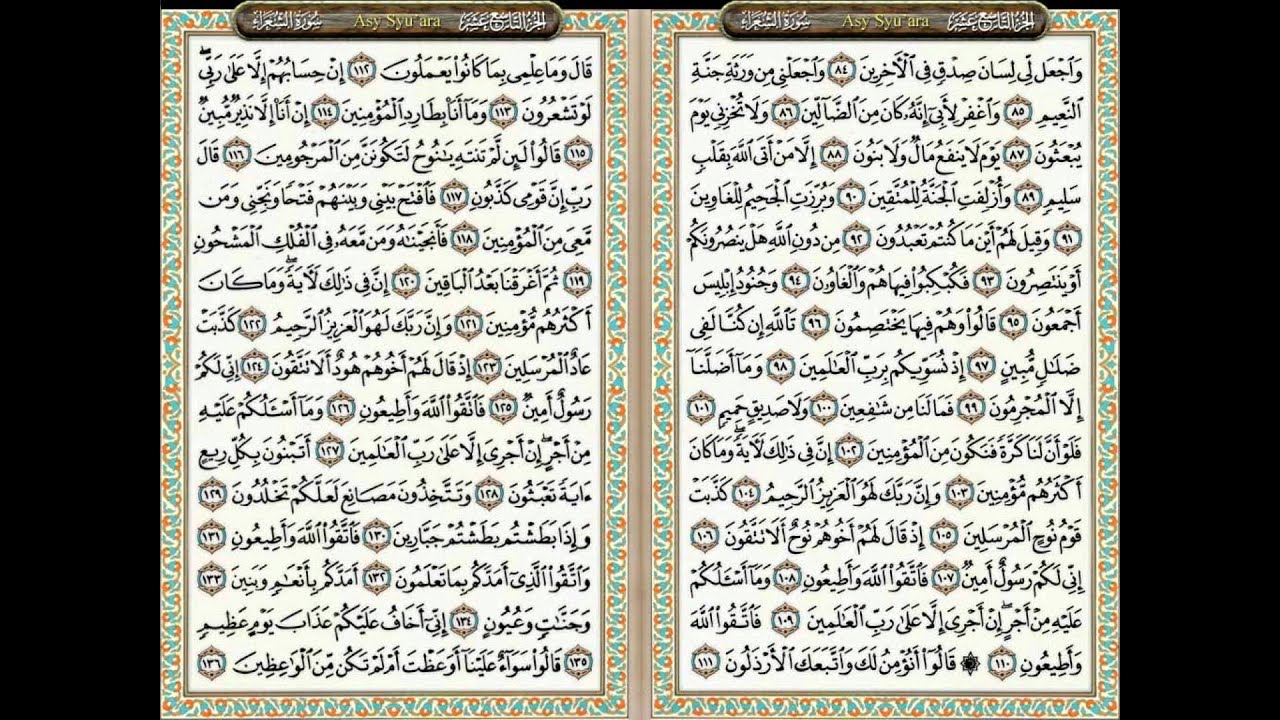 الجزء التاسع عشر Asy Syu`ara سورة الشعراء
وَٱجْعَل لِّى لِسَانَ صِدْقٍ فِى ٱلْأَخِرِينَ ٨٤ وَٱجْعَلْنِى مِن وَرَثَةِ جَنَّةِ
ٱلنَّعِيمِ ٨٥ وَٱغْفِرْ لِأَبِىٓ إِنَّهُۥ كَانَ مِنَ ٱلضَّآلِّينَ ٨٦ وَلَا تُخْزِنِى يَوْمَ
يُبْعَثُونَ ٨٧ يَوْمَ لَا يَنفَعُ مَالٌ وَلَا بَنُونَ ٨٨ إِلَّا مَنْ أَتَى ٱللَّهَ بِقَلْبٍ
سَلِيمٍ ٨٩ وَأُزْلِفَتِ ٱلْجَنَّةُ لِلْمُتَّقِينَ ٩٠ وَبُرِّزَتِ ٱلْجَحِيمُ لِلْغَاوِينَ
٩١ وَقِيلَ لَهُمْ أَيْنَ مَا كُنتُمْ تَعْبُدُونَ ٩٢ مِن دُونِ ٱللَّهِ هَلْ يَنصُرُونَكُمْ
أَوْ يَنتَصِرُونَ ٩٣ فَكُبْكِبُوا۟ فِيهَا هُمْ وَٱلْغَاوُۥنَ ٩٤ وَجُنُودُ إِبْلِيسَ
أَجْمَعُونَ ٩٥ قَالُوا۟ وَهُمْ فِيهَا يَخْتَصِمُونَ ٩٦ تَٱللَّهِ إِن كُنَّا لَفِى
ضَلَٰلٍ مُّبِينٍ ٩٧ إِذْ نُسَوِّيكُم بِرَبِّ ٱلْعَٰلَمِينَ ٩٨ وَمَآ أَضَلَّنَآ
إِلَّا ٱلْمُجْرِمُونَ ٩٩ فَمَا لَنَا مِن شَٰفِعِينَ ١٠٠ وَلَا صَدِيقٍ حَمِيمٍ ١٠١
فَلَوْ أَنَّ لَنَا كَرَّةً فَنَكُونَ مِنَ ٱلْمُؤْمِنِينَ ١٠٢ إِنَّ فِى ذَٰلِكَ لَأَيَةً ۖ وَمَا كَانَ
أَكْثَرُهُم مُّؤْمِنِينَ ١٠٣ وَإِنَّ رَبَّكَ لَهُوَ ٱلْعَزِيزُ ٱلرَّحِيمُ ١٠٤ كَذَّبَتْ
قَوْمُ نُوحٍ ٱلْمُرْسَلِينَ ١٠٥ إِذْ قَالَ لَهُمْ أَخُوهُمْ نُوحٌ أَلَا تَتَّقُونَ ١٠٦
إِنِّى لَكُمْ رَسُولٌ أَمِينٌ ١٠٧ فَٱتَّقُوا۟ ٱللَّهَ وَأَطِيعُونِ ١٠٨ وَمَآ أَسْـَٔلُكُمْ
عَلَيْهِ مِنْ أَجْرٍ ۖ إِنْ أَجْرِىَ إِلَّا عَلَىٰ رَبِّ ٱلْعَٰلَمِينَ ١٠٩ فَٱتَّقُوا۟ ٱللَّهَ
وَأَطِيعُونِ ١١٠ ۞ قَالُوٓا۟ أَنُؤْمِنُ لَكَ وَٱتَّبَعَكَ ٱلْأَرْذَلُونَ ١١١
الجزء التاسع عشر Asy Syu`ara سورة الشعراء
قَالَ وَمَا عِلْمِى بِمَا كَانُوا۟ يَعْمَلُونَ ١١٢ إِنْ حِسَابُهُمْ إِلَّا عَلَىٰ رَبِّى ۖ
لَوْ تَشْعُرُونَ ١١٣ وَمَآ أَنَا۠ بِطَارِدِ ٱلْمُؤْمِنِينَ ١١٤ إِنْ أَنَا۠ إِلَّا نَذِيرٌ مُّبِينٌ
١١٥ قَالُوا۟ لَئِن لَّمْ تَنتَهِ يَٰنُوحُ لَتَكُونَنَّ مِنَ ٱلْمَرْجُومِينَ ١١٦ قَالَ
رَبِّ إِنَّ قَوْمِى كَذَّبُونِ ١١٧ فَٱفْتَحْ بَيْنِى وَبَيْنَهُمْ فَتْحًا وَنَجِّنِى وَمَن
مَّعِىَ مِنَ ٱلْمُؤْمِنِينَ ١١٨ فَأَنجَيْنَٰهُ وَمَن مَّعَهُۥ فِى ٱلْفُلْكِ ٱلْمَشْحُونِ
١١٩ ثُمَّ أَغْرَقْنَا بَعْدُ ٱلْبَاقِينَ ١٢٠ إِنَّ فِى ذَٰلِكَ لَأَيَةً ۖ وَمَا كَانَ
أَكْثَرُهُم مُّؤْمِنِينَ ١٢١ وَإِنَّ رَبَّكَ لَهُوَ ٱلْعَزِيزُ ٱلرَّحِيمُ ١٢٢ كَذَّبَتْ
عَادٌ ٱلْمُرْسَلِينَ ١٢٣ إِذْ قَالَ لَهُمْ أَخُوهُمْ هُودٌ أَلَا تَتَّقُونَ ١٢٤ إِنِّى لَكُمْ
رَسُولٌ أَمِينٌ ١٢٥ فَٱتَّقُوا۟ ٱللَّهَ وَأَطِيعُونِ ١٢٦ وَمَآ أَسْـَٔلُكُمْ عَلَيْهِ
مِنْ أَجْرٍ ۖ إِنْ أَجْرِىَ إِلَّا عَلَىٰ رَبِّ ٱلْعَٰلَمِينَ ١٢٧ أَتَبْنُونَ بِكُلِّ رِيعٍ
ءَايَةً تَعْبَثُونَ ١٢٨ وَتَتَّخِذُونَ مَصَانِعَ لَعَلَّكُمْ تَخْلُدُونَ ١٢٩
وَإِذَا بَطَشْتُم بَطَشْتُمْ جَبَّارِينَ ١٣٠ فَٱتَّقُوا۟ ٱللَّهَ وَأَطِيعُونِ ١٣١
وَٱتَّقُوا۟ ٱلَّذِىٓ أَمَدَّكُم بِمَا تَعْلَمُونَ ١٣٢ أَمَدَّكُم بِأَنْعَٰمٍ وَبَنِينَ ١٣٣
وَجَنَّٰتٍ وَعُيُونٍ ١٣٤ إِنِّىٓ أَخَافُ عَلَيْكُمْ عَذَابَ يَوْمٍ عَظِيمٍ
١٣٥ قَالُوا۟ سَوَآءٌ عَلَيْنَآ أَوَعَظْتَ أَمْ لَمْ تَكُن مِّنَ ٱلْوَٰعِظِينَ ١٣٦